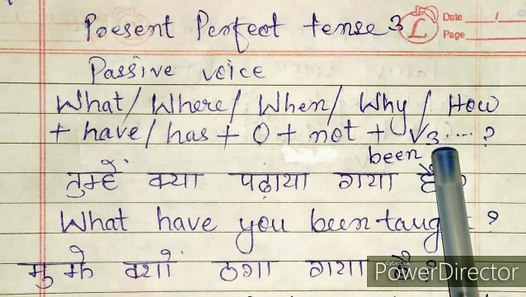 Present Perfect tense 3
Date
Page
Passive voice
What/ Where/ When/ Why / How
+ have/ has + O + not + √3 .... ?
been
तुम्हें क्या पढ़ाया गया है
What have you been taught ?
मुझे क्यों ठगा गया है ?
PowerDirector